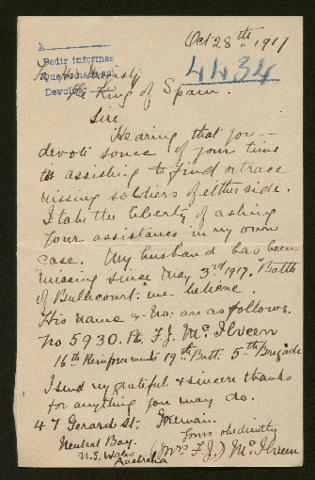 Oct 28th 1917
A
Pedir informes
Devol
4434
To His Majesty
The King of Spain.
Sire
Hearing that you —
devote some of your time
to assisting to find or trace
missing soldiers of either side.
I take the liberty of asking
your assistance in my own
case. My husband has been
missing since May 3rd 1917. "Battle
of Bullecourt" we believe.
His name & No: are as follows.
No 5930. Pte F. J. Mc Ilveen
16th Reinforcements 19th Batt: 5th Brigade
I send my grateful & sincere thanks
for anything you may do.
47 Gerard St: I remain
Neutral Bay. Yours obediently
N.S. Wales (Mrs F. J.) Mc Ilveen
Australia